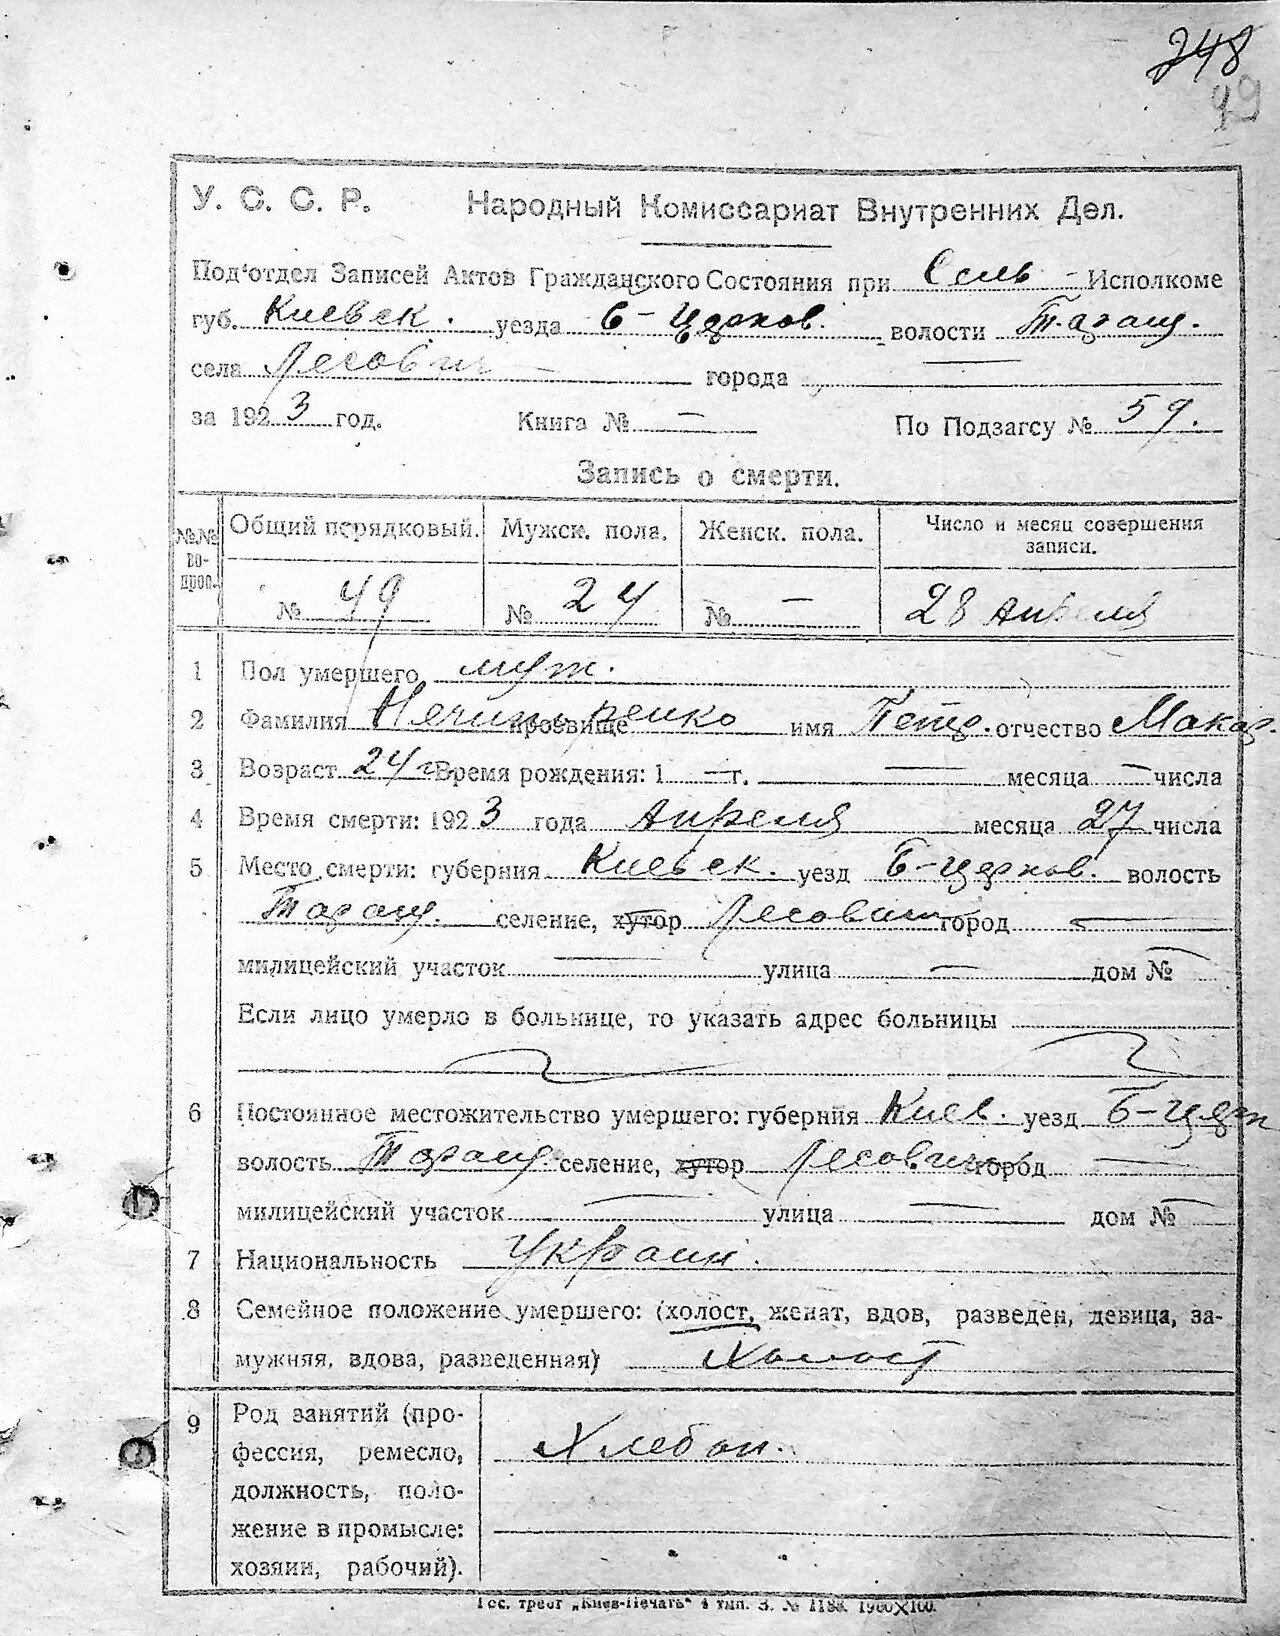 248
49
У. С. С. Р. Народный Комиссариат Внутренних Дел.
Под'отдел Записей Актов Гражданского Состояния при Сель - Исполкоме
губ. Киевск. уезда Б-Церков. волости Таращ.
села Лесович города —
за 1923 год. Книга № — По Подзагсу № 59.
Запись о смерти.
№№ вопрос. Общий порядковый. Мужск. пола. Женск. пола. Число и месяц совершения записи.
№ 49 № 24 № — 28 Апреля
1 Пол умершего муж.
2 Фамилия Нечипоренко прозвище имя Петр. отчество Макар.
3 Возраст 24 г. Время рождения: 1 — г. — месяца — числа
4 Время смерти: 1923 года Апреля месяца 27 числа
5 Место смерти: губерния Киевск. уезд Б-Церков. волость
Таращ. селение, хутор Лесович город —
милицейский участок — улица — дом № —
Если лицо умерло в больнице, то указать адрес больницы
6 Постоянное местожительство умершего: губерния Киев. уезд Б-Церк
волость Таращ. селение, хутор Лесович город —
милицейский участок — улица — дом № —
7 Национальность Украин.
8 Семейное положение умершего: (холост, женат, вдов, разведен, девица, за-
мужняя, вдова, разведенная) Холост
9 Род занятий (про-
фессия, ремесло, Хлебоп.
должность, поло-
жение в промысле:
хозяин, рабочий).
Гос. трест „Киев-Печать" 4 тип. З. № 1188. 1900X100.